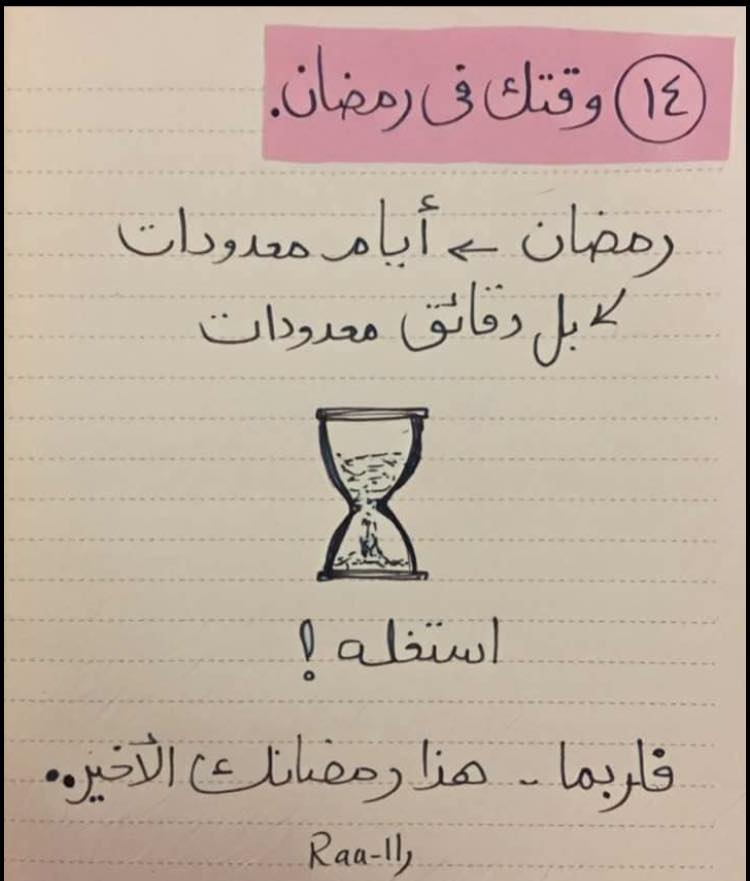 ١٤ وقتك في رمضان.
رمضان ← أيام معدودات
↙ بل دقائق معدودات
استغله !
فلربما - هذا رمضانك الأخير..
Raa-11